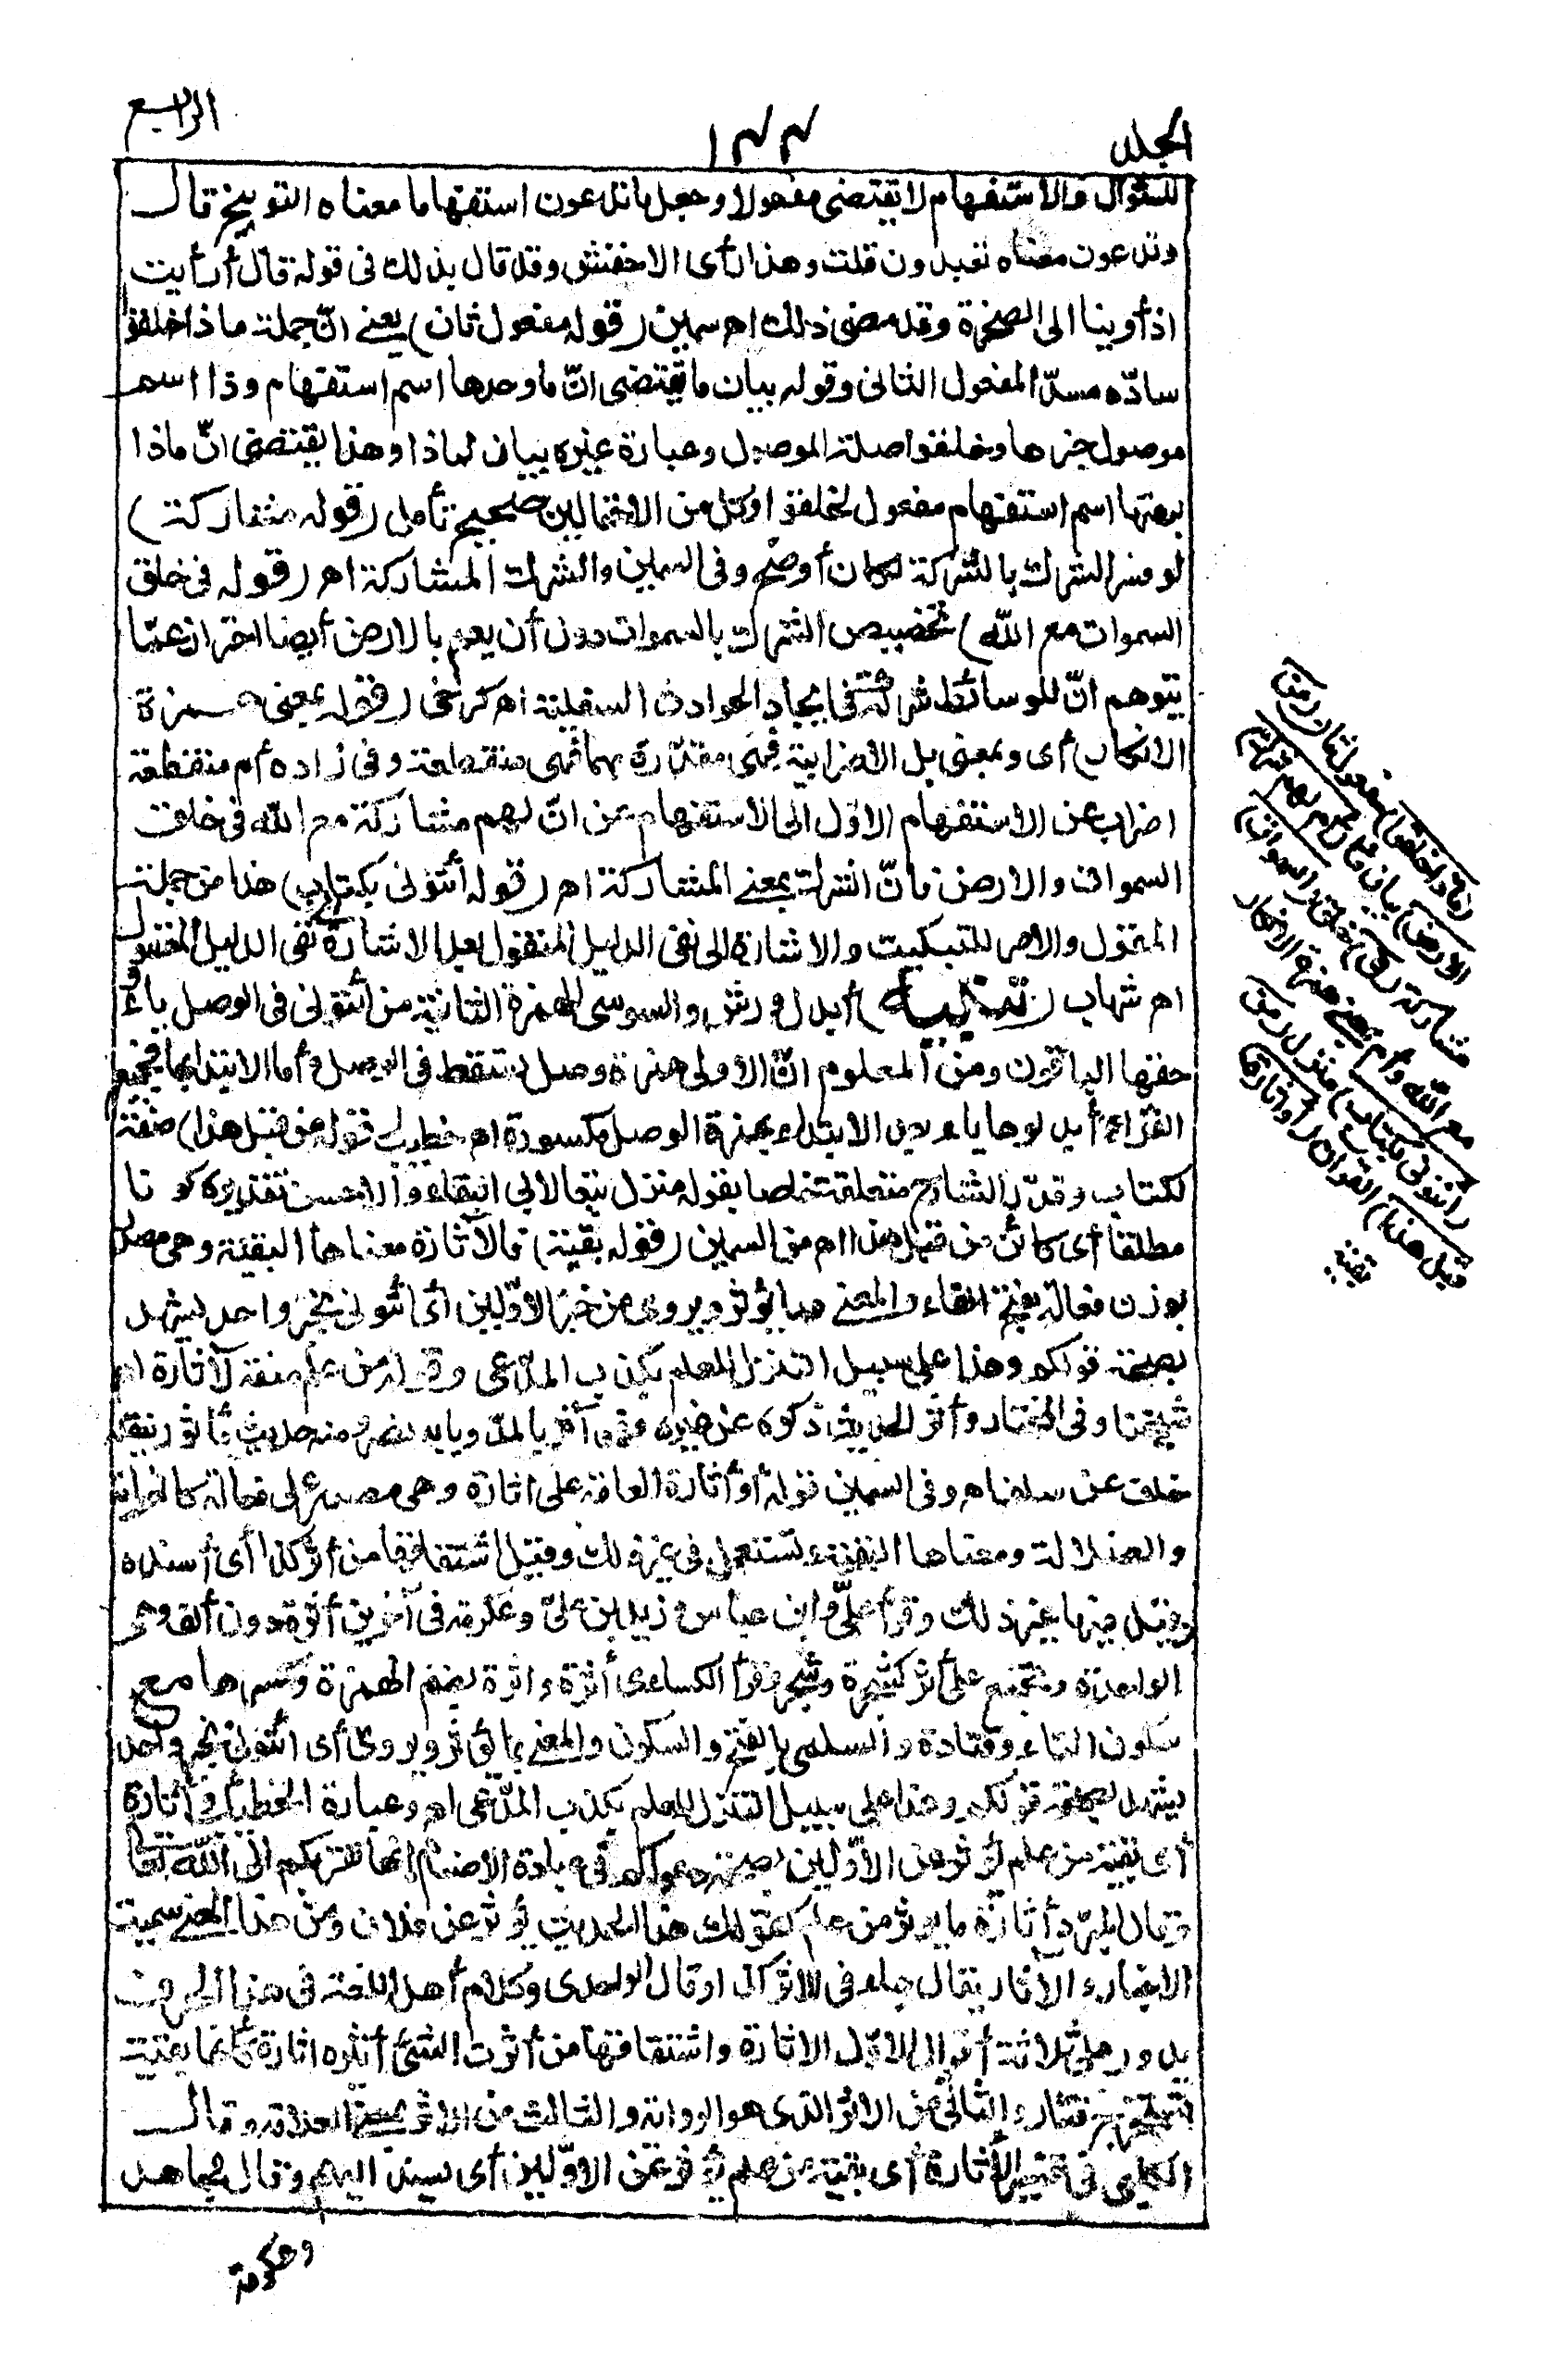 الجلد
١٢٢
الرابع
للسؤال والاستفهام لا يقتضى مفعولا وجعل ما تدعون استفهاما معناه التوبيخ قال
وتدعون معناه تعبدون قلت وهذا رأى الاخفش وقد قال بذلك فى قوله قال أرأيت
اذ أوينا الى الصخرة وقد مضى ذلك اه سمين (قوله مفعول ثان) يعنى انّ جملة ماذا خلقوا
سادّه مسدّ المفعول الثانى وقوله بيان ما يقتضى انّ ما وحدها اسم استفهام وذا اسم
موصول خبرها وخلقوا صلة الموصول وعبارة غيره بيان لماذا وهذا يقتضى انّ ماذا
برمتها اسم استفهام مفعول لخلقوا وكل من الاحتمالين صحيح تأمل (قوله مشاركة)
لو فسر الشرك بالشركة لكان أوضح وفى السمين والشرك المشاركة اه (قوله فى خلق
السموات مع الله) تخصيص الشرك بالسموات دون أن يعم بالارض أيضا احتراز عمّا
يتوهم انّ للوسائط شركة فى ايجاد الحوادث السفلية اه كرخى (قوله بمعنى همزة
الانكار) أى وبمعنى بل الاضرابية فهى مقدّرة بهما فهى منقطعة وفى زاده أم منقطعة
اضراب عن الاستفهام الاوّل الى الاستفهام عن انّ لهم مشاركة مع الله فى خلق
السموات والارض فانّ الشرك بمعنى المشاركة اه (قوله ائتونى بكتاب) هذا من جملة
المقول والامر للتبكيت والاشارة الى نفى الدليل المنقول بعد الاشارة الى نفى الدليل المعقول
اه شهاب (تنبيه) أبدل ورش والسوسى الهمزة الثانية من ائتونى فى الوصل ياء و
حققها الباقون ومن المعلوم انّ الاولى همزة وصل تسقط فى الوصل وأما الابتداء بها فجميع
القراء أبدلوها ياء بعد الابتداء بهمزة الوصل مكسورة اه خطيب (قوله من قبل هذا) صفة
لكتاب وقدّر الشارح متعلقة خاصا بقوله منزل تبعا لابى البقاء والاحسن تقديره كونا
مطلقا أى كائن من قبل هذا اه من السمين (قوله بقية) فالأثارة معناها البقية وهى مصدر
بوزن فعالة بفتح الفاء والمعنى بما يؤثر ويروى من خبر الاوّلين أى ائتونى بخبر واحد يشهد
بصحة قولكم وهذا على سبيل التنزل للعلم بكذب المدّعى وقوله من علم صفة لأثارة اه
شيخنا وفى المختار وأثر الحديث ذكره عن غيره فهو آثر بالمدّ وبابه نصر ومنه حديث مأثور ينقله
خلف عن سلف اه وفى السمين قوله أو أثارة العامة على اثارة وهى مصدر على فعالة كالغواية
والضلالة ومعناها البقية وتستعمل فى غير ذلك وقيل اشتقاقها من أثر كذا أى أسنده
وقيل فيها غير ذلك وقرأ علىّ وابن عباس وزيد بن علىّ وعكرمة فى آخرين أثرة دون ألف وهى
الواحدة وتجمع على أثر كشجرة وشجر وقرأ الكسائى أثرة واثرة بضم الهمزة وكسرها مع
سكون الثاء وقتادة والسلمى بالفتح والسكون والمعنى بما يؤثر ويروى أى ائتونى بخبر واحد
يشهد بصحة قولكم وهذا على سبيل التنزل للعلم بكذب المدّعى اه وعبارة الخطيب أو أثارة
أى بقية من علم يؤثر عن الأوّلين بصحة دعواكم فى عبادة الاصنام انها تقرّبكم الى الله تعالى
وقال المبرّد أثارة ما يؤثر من علم كقولك هذا الحديث يؤثر عن فلان ومن هذا المعنى سميت
الاخبار والآثار يقال جاء فى الاثر كذا وقال الواحدى وكلام أهل اللغة فى هذا الحرف
يدور على ثلاثة أقوال الاوّل الاثارة واشتقاقها من أثرت الشئ أثيره اثارة كأنها بقية
تستخرج فتثار والثانى من الاثر الذى هو الرواية والثالث من الاثر بمعنى العلامة وقال
الكلبى فى تفسير الأثارة أى بقية من علم يؤثر عن الاوّلين أى يسند اليهم وقال مجاهد
وعكرمة
(ماذا خلقوا) مفعول ثان (من
الارض) بيان ما (أم لهم شرك)
مشاركة (فى) خلق (السموات)
مع الله وأم بمعنى همزة الانكار
(ائتونى بكتاب) منزل (من
قبل هذا) القرآن (أو أثارة)
بقية